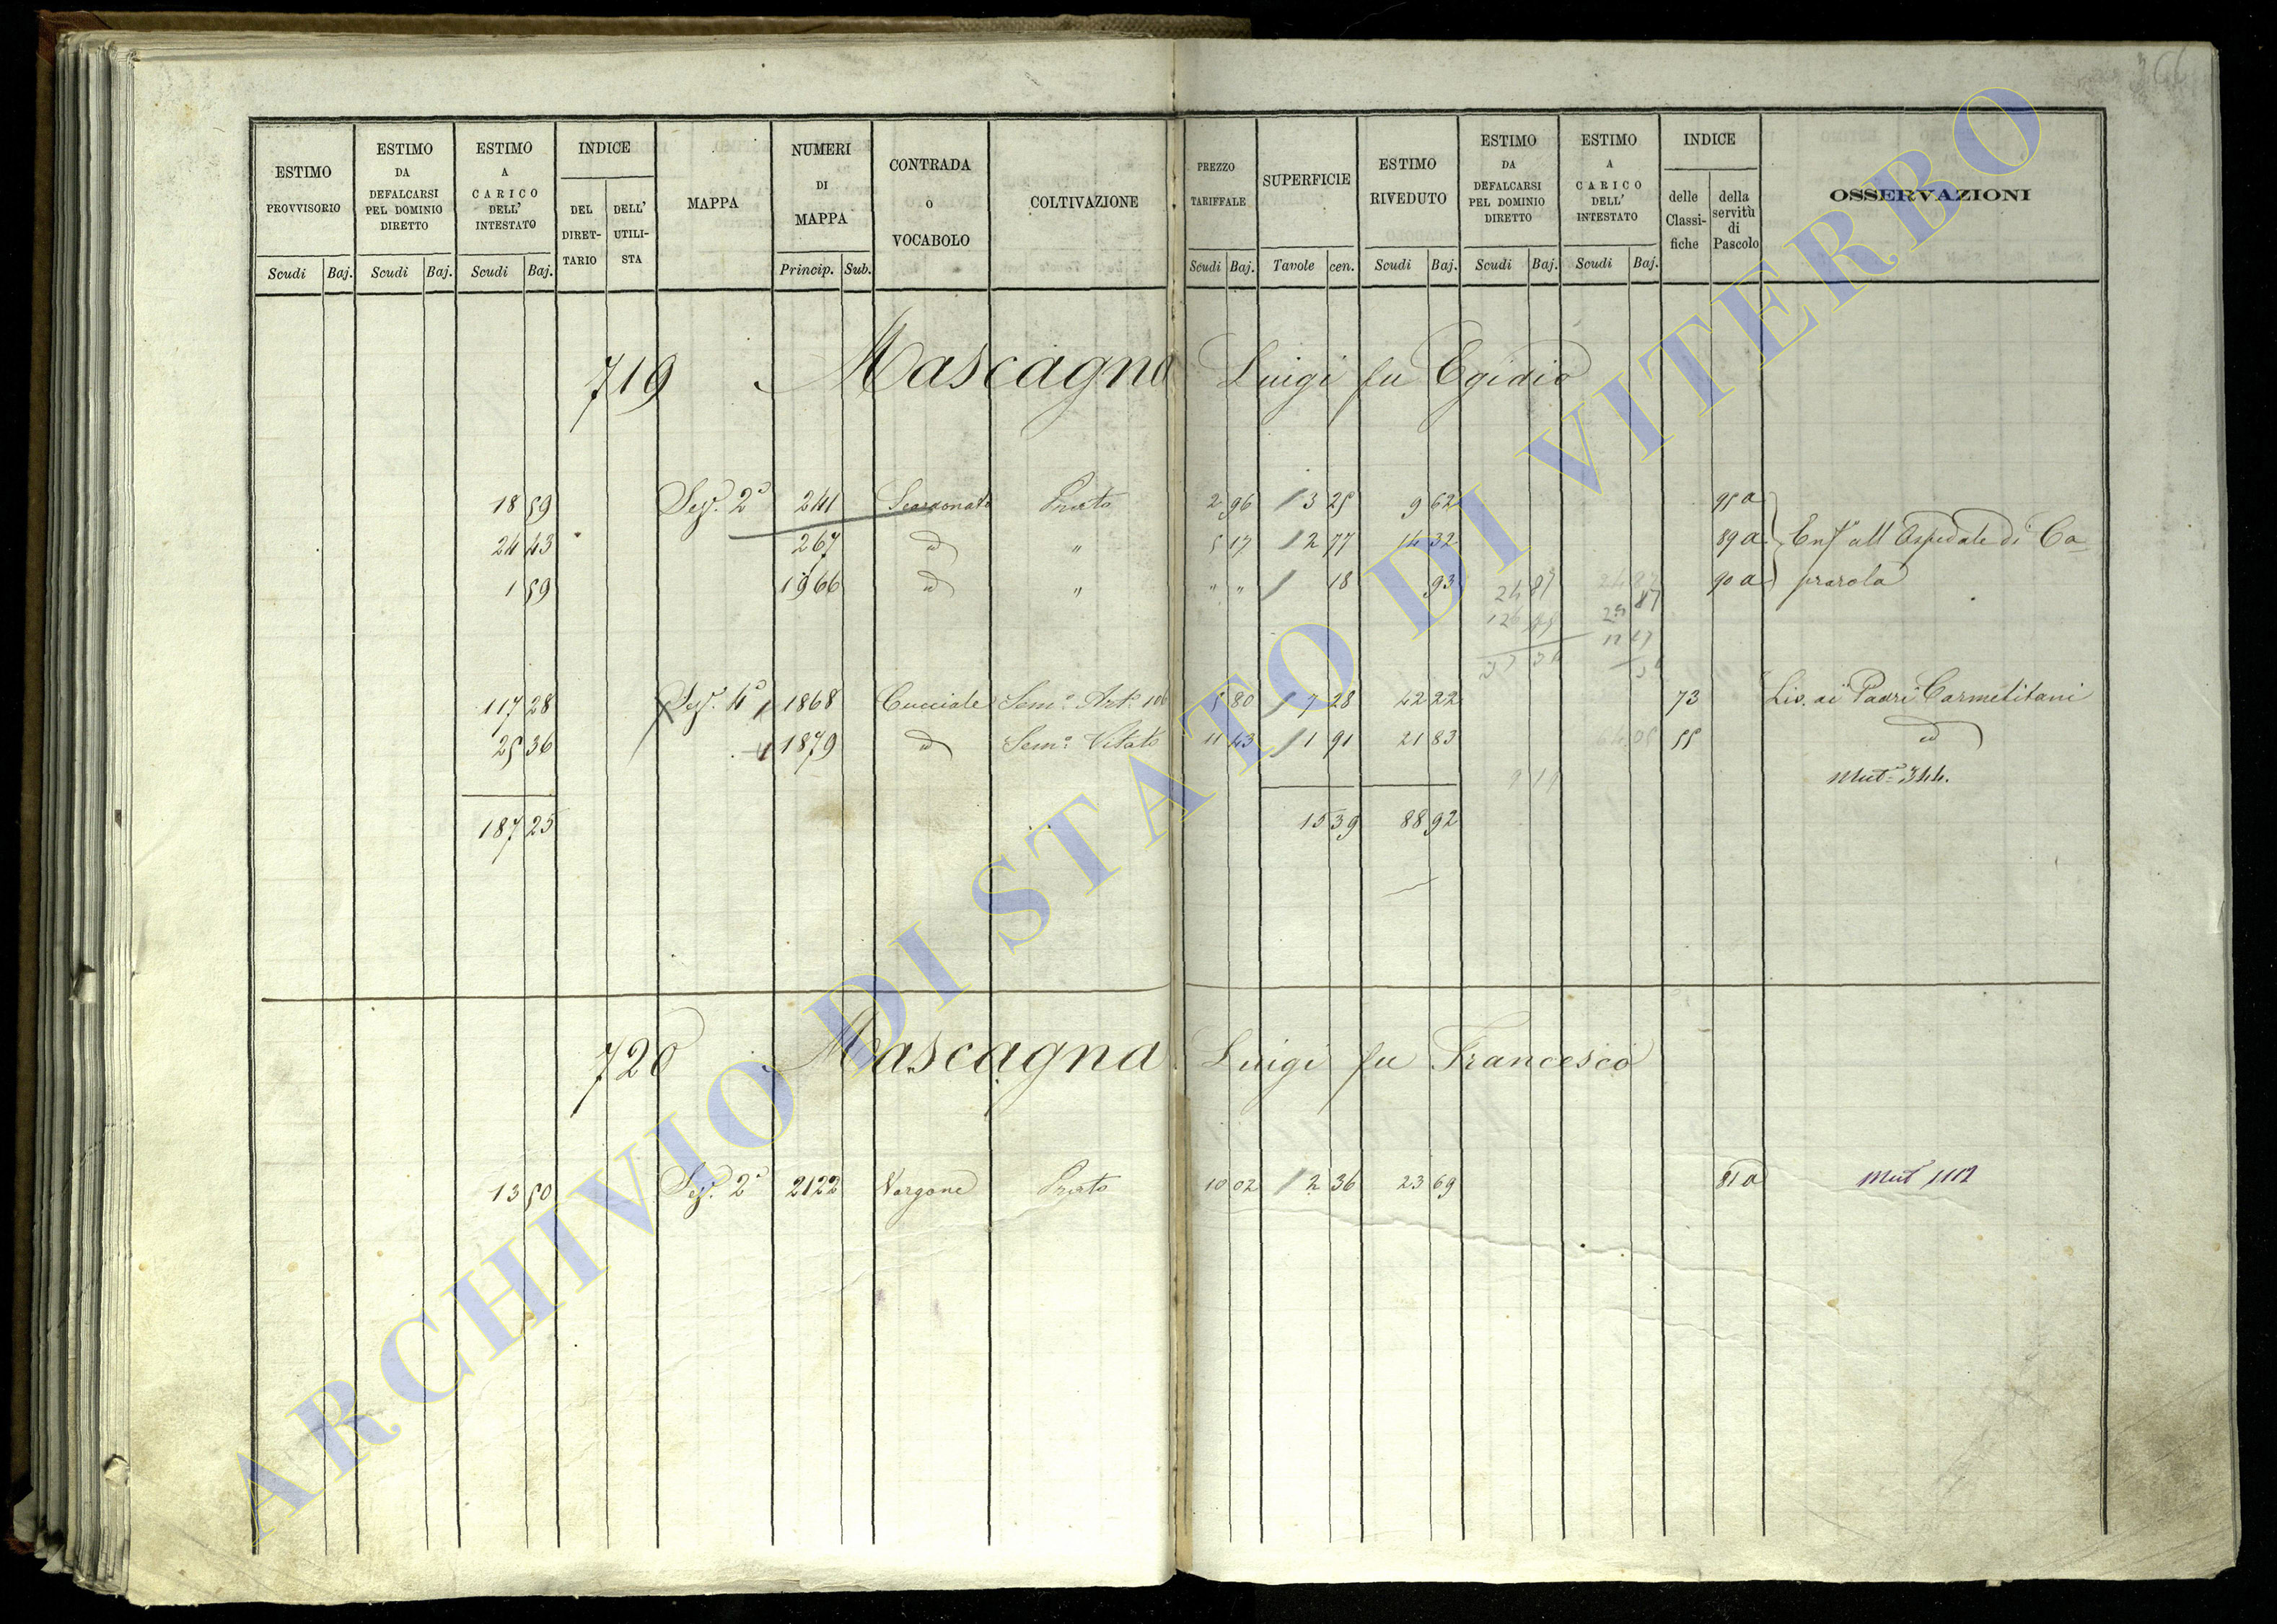 366
ESTIMO PROVVISORIO Scudi Baj.
ESTIMO DA DEFALCARSI PEL DOMINIO DIRETTO Scudi Baj.
ESTIMO A CARICO DELL' INTESTATO Scudi Baj.
INDICE DEL DIRET-TARIO DELL' UTILI-STA
MAPPA
NUMERI DI MAPPA Princip. Sub.
CONTRADA o VOCABOLO
COLTIVAZIONE
PREZZO TARIFFALE Scudi Baj.
SUPERFICIE Tavole cen.
ESTIMO RIVEDUTO Scudi Baj.
ESTIMO DA DEFALCARSI PEL DOMINIO DIRETTO Scudi Baj.
ESTIMO A CARICO DELL' INTESTATO Scudi Baj.
INDICE delle Classi-fiche della servitù di Pascolo
OSSERVAZIONI
719 Mascagna Luigi fu Egidio
18 59 Sez. 2ª 241 Prato 2 96 3 25 9 62 95 a
24 43 267 id " 5 17 2 77 14 32 89 a Enf. all Ospedale di Ca=
1 59 1966 id " " " 18 93 90 a prarola
24 87
117 28 Sez. 4ª 1868 Cucciale Sem.º Art.º 106 5 80 7 28 42 22 73 Liv. ai Padri Carmelitani
25 36 1879 id Sem.º Vitato 11 43 1 91 21 83 64 05 55 id
Mut.ª 344.
187 25 15 39 88 92
720 Mascagna Luigi fu Francesco
13 50 Sez. 2ª 2122 Vorgone Prato 10 02 2 36 23 69 81 a Mut 1112
ARCHIVIO DI STATO DI VITERBO